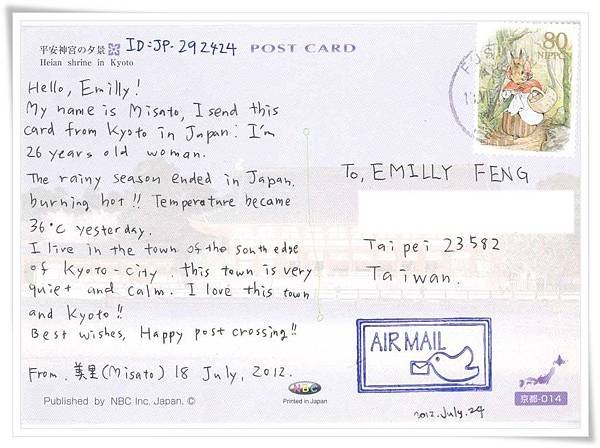 平安神宮の夕景 ID:JP-292424 POST CARD
Heian shrine in Kyoto
80
NIPPON
Hello, Emilly!
My name is Misato, I send this
card from Kyoto in Japan. I'm
26 years old woman.
The rainy season ended in Japan.
burning hot!! Temperature became
36°C yesterday.
I live in the town of the south edge
of Kyoto-city. this town is very
quiet and calm. I love this town
and Kyoto!!
Best wishes, Happy post crossing!!
From. 美里(Misato) 18 July, 2012.
To, EMILLY FENG
Taipei 23582
Taiwan.
AIR MAIL
2012.July.24
Published by NBC Inc. Japan. ©
NBC
Printed in Japan
京都-014